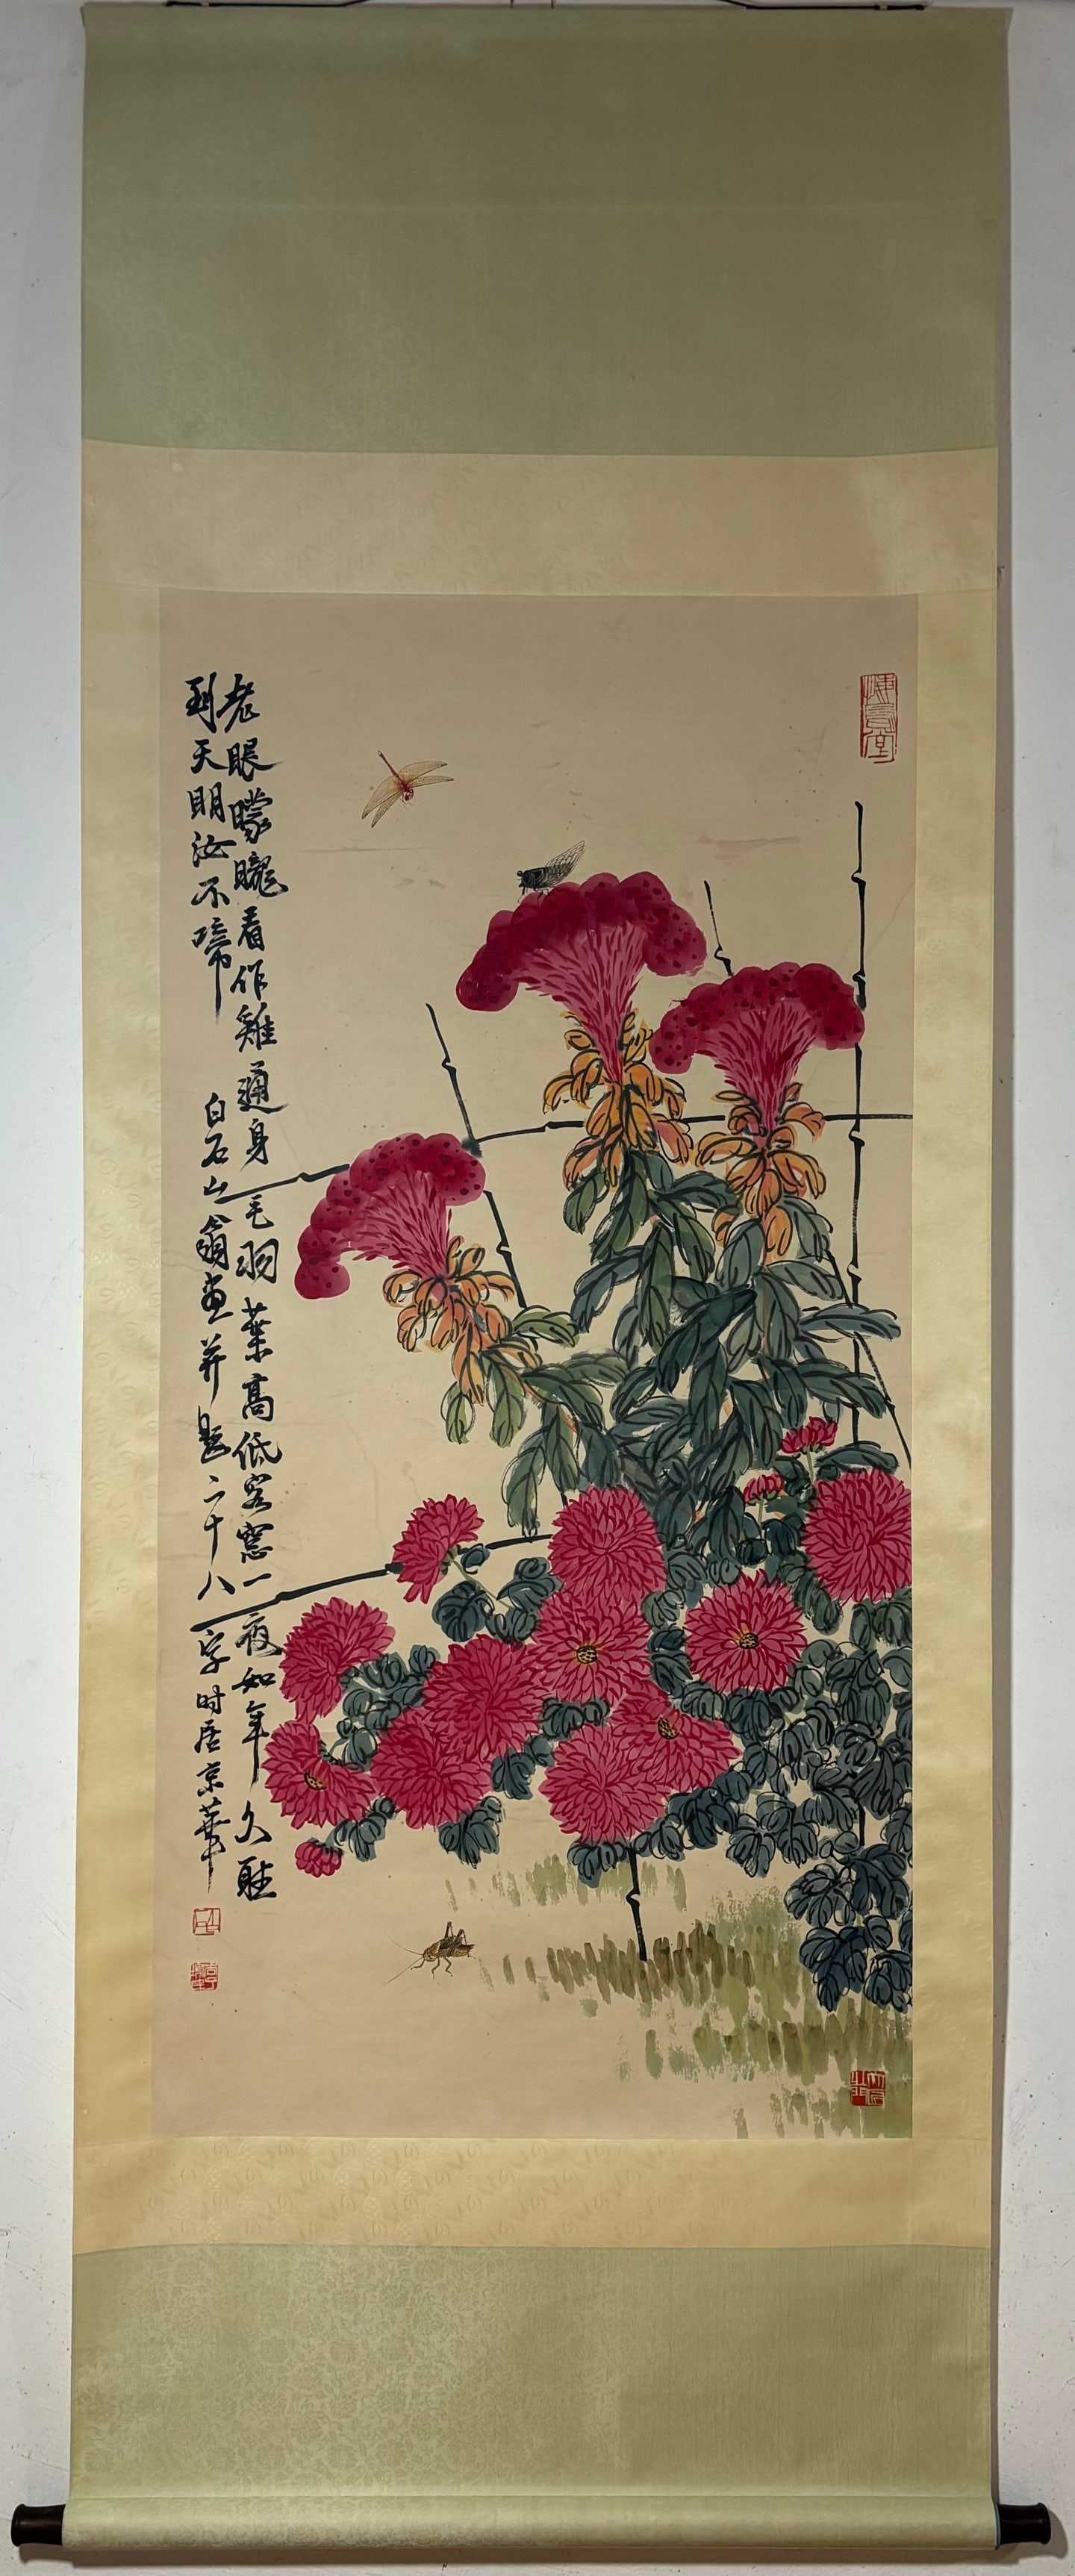 老眼矇矓看作雞通身毛羽葉高低客窓一夜如年久聽
到天明汝不啼
白石山翁畫并題二十八字时居京華